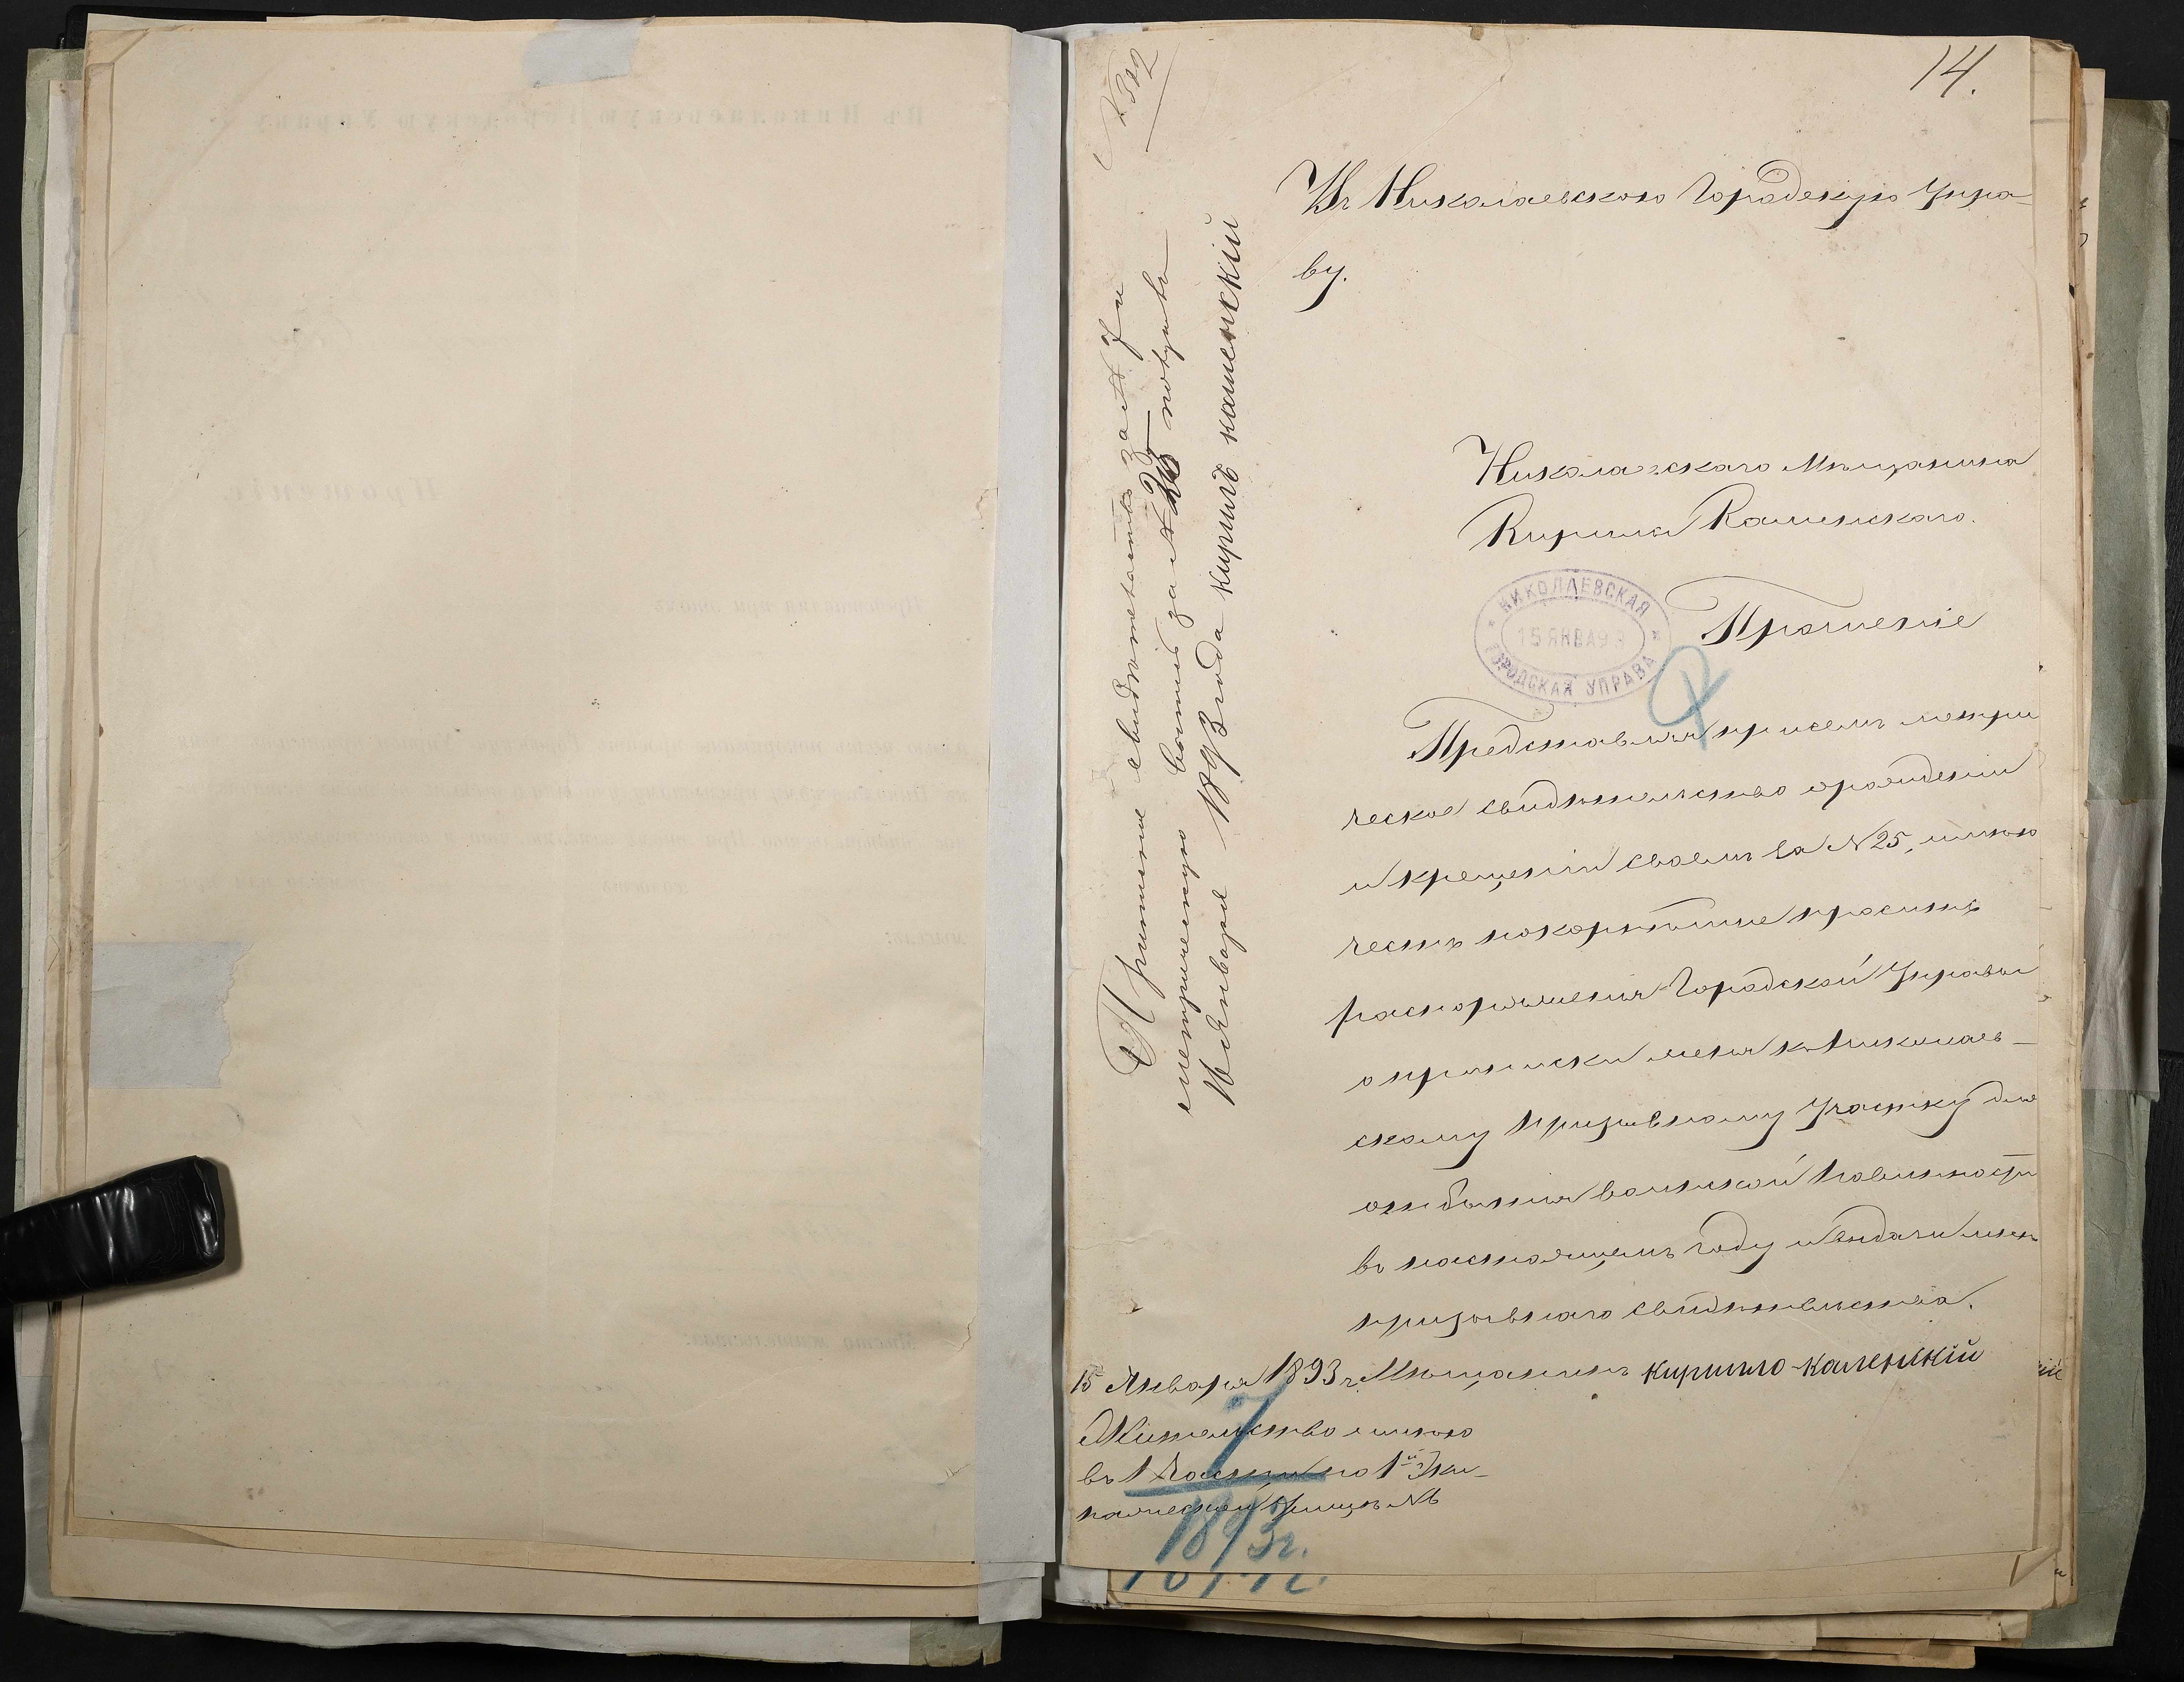 14.
№ 312
Въ Николаевскою Городскую Упра-
ву.
Николаевскаго Мѣщанина
Кирила Каменскаго.
НИКОЛАЕВСКАЯ
15 ЯНВА 93
ГОРОДСКАЯ УПРАВА
Прошеніе
Представляя при семъ метри
ческое свидѣтельство о рождении
и крещеніи своемъ за № 25, имѣю
честь покорнѣйше просить
распоряженія Городской Управы
о приписки меня къ Николаев-
скому призывному участку для
отбытія воинской повинности
въ настоящемъ году и выдачи мнѣ
призывнаго свидѣтельства.
15 Января 1893 г. Мѣщанинъ кирило каменскій
Жительство имѣю
въ 1 Части по 1й Эки-
пажеской улицѣ № 6
1893г.
Приписное свидѣтельство за №
метрическую выпись за № 25 получилъ
16 Января 1893 года кирилъ каменскій